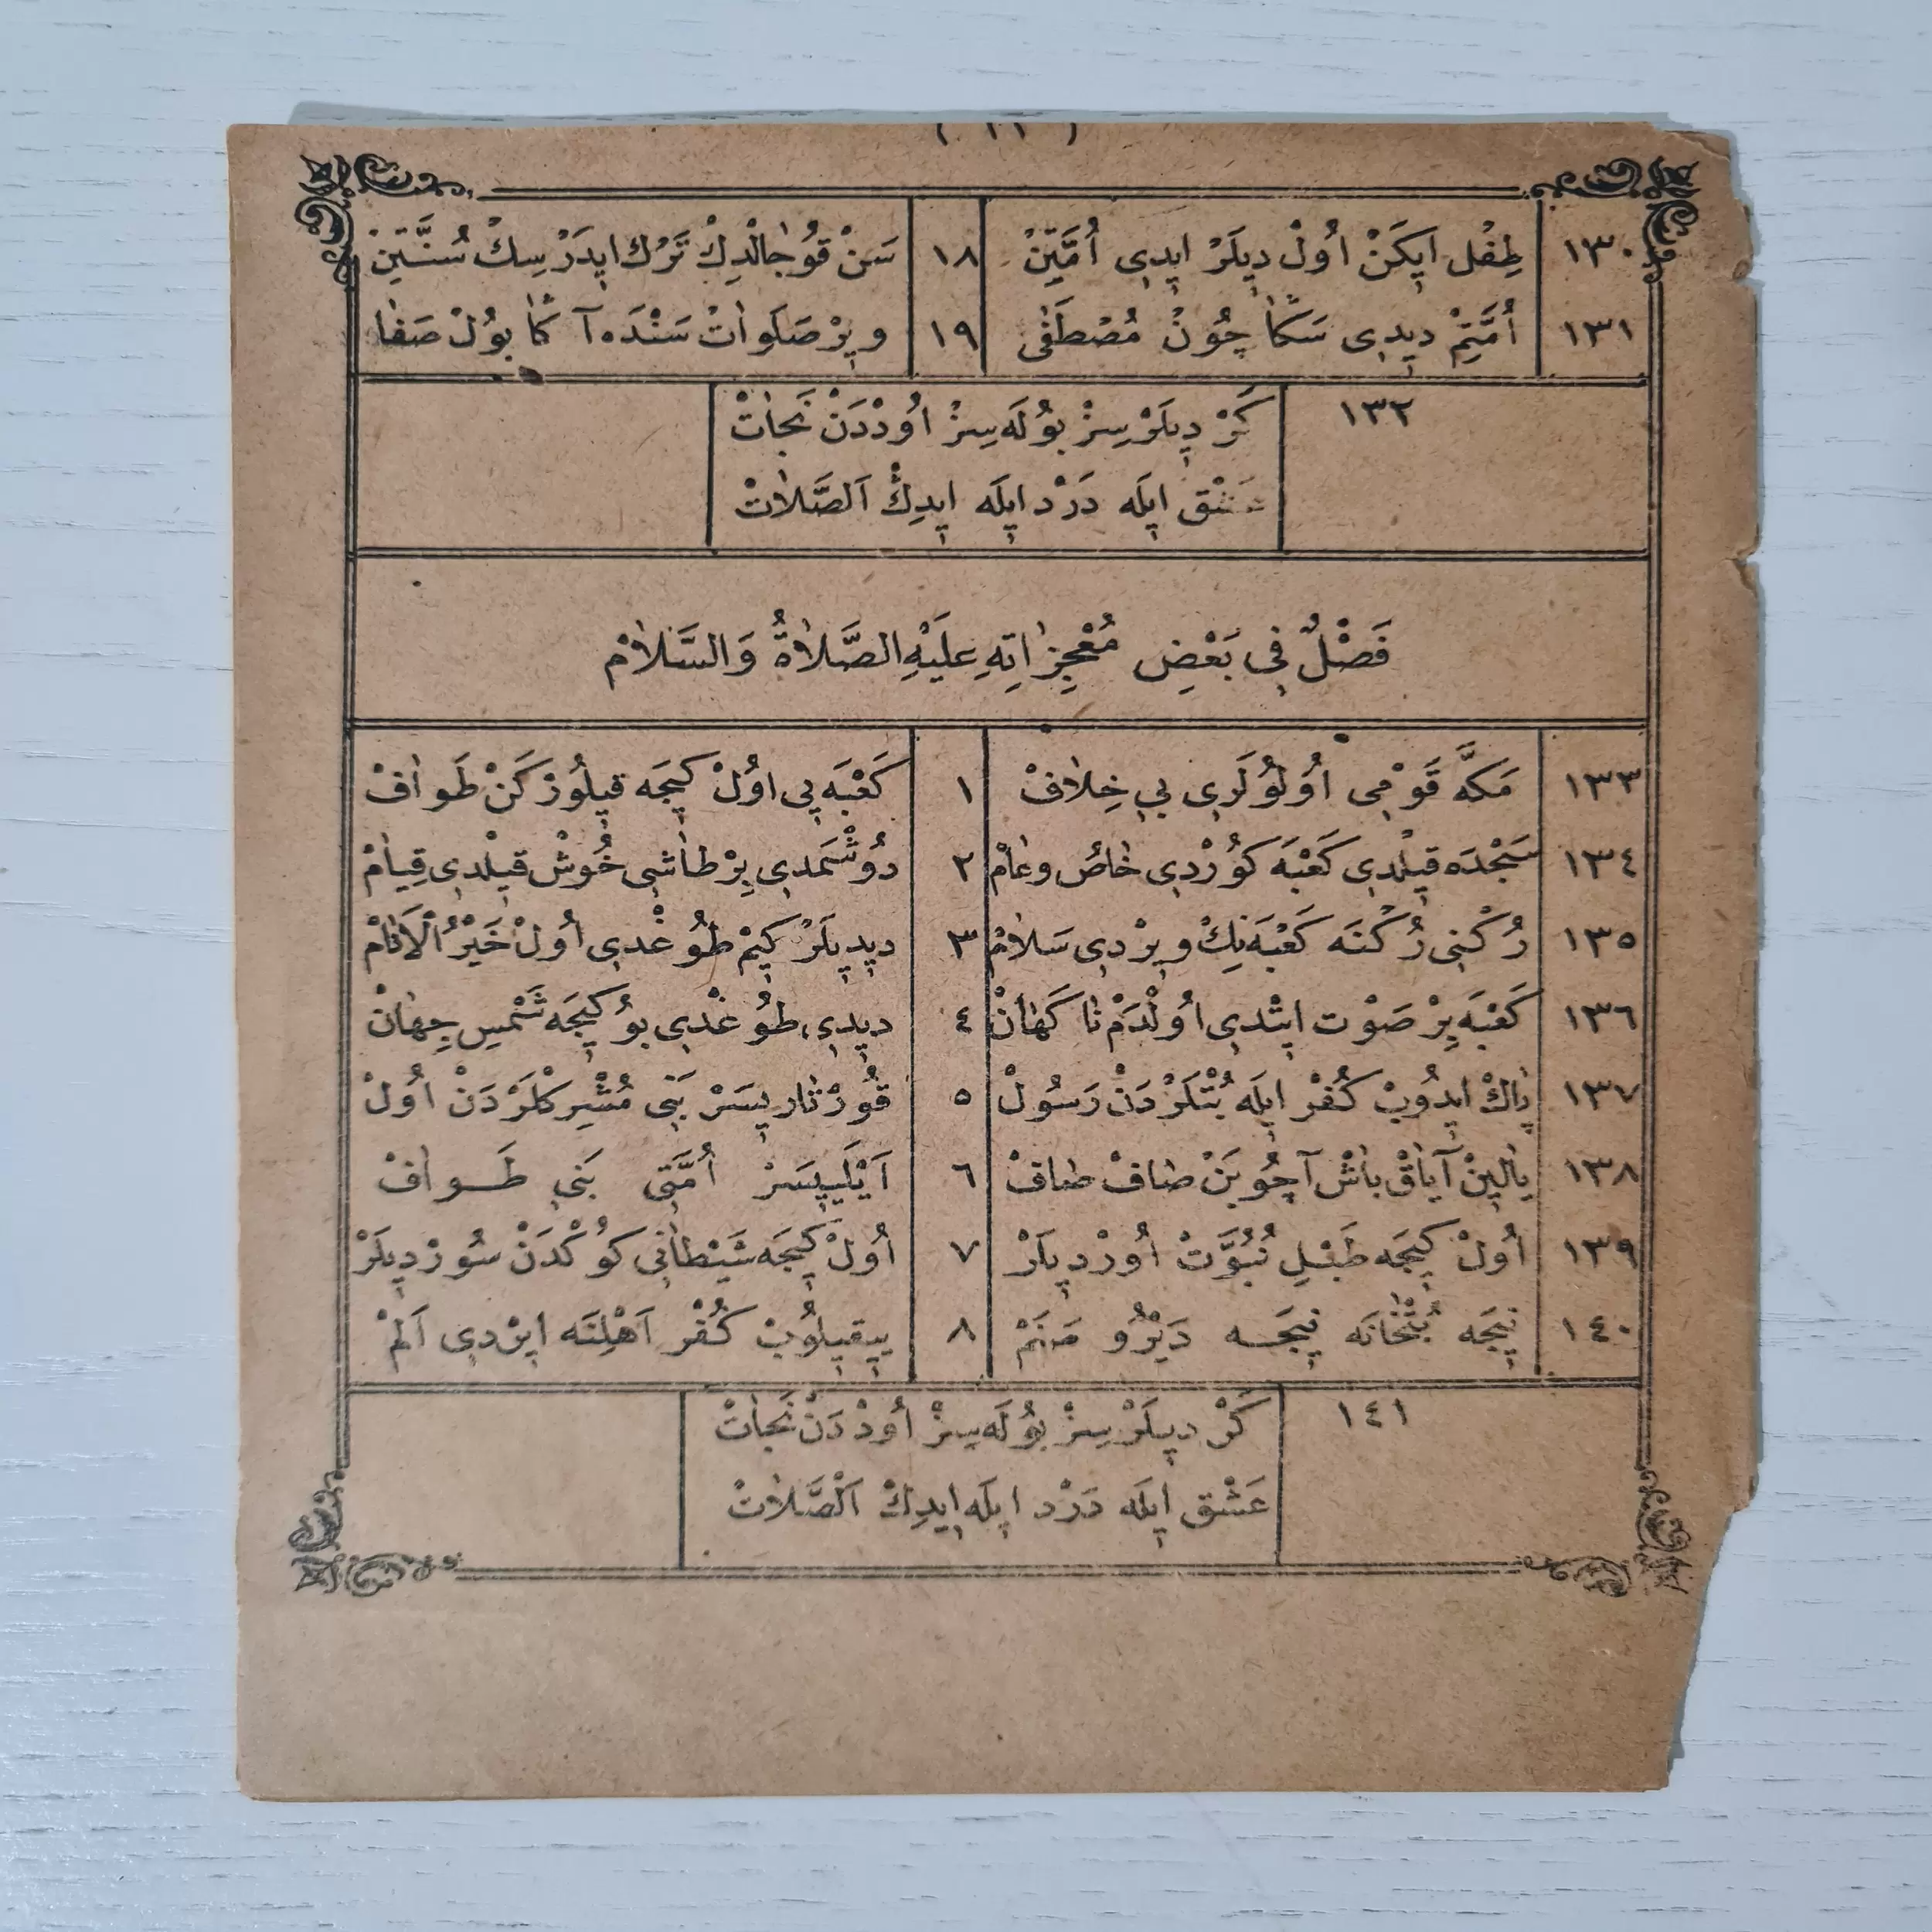 ( ١١ )
١٣٠ طِفْل اِيكَنْ اُولْ دِيلَرْ ايدِى اُمَّتِنْ ١٨ سَنْ قُوجَالْدِكْ تَرْك ايدَرْسِكْ سُنَّتِنْ
١٣١ اُمَّتِمْ ديدِى سَكَا چُونْ مُصْطَفٰى ١٩ ويرْ صَلَوٰاتْ سَنْدَه آكَا بُولْ صَفَا
١٣٢ كَرْ دِيلَرْسِزْ بُولَه سِزْ اُودْدَنْ نَجَاتْ
عَشْق ايلَه دَرْد ايلَه ايدِكْ اَلصَّلَاتْ
فَصْلٌ فِى بَعْضِ مُعْجِزَاتِهِ عَلَيْهِ الصَّلَاةُ وَالسَّلَامْ
١٣٣ مَكَّه قَوْمِى اُولُولَرِى بِى خِلَافْ ١ كَعْبَه يِى اُولْ كِيجَه قِيلُورْكَنْ طَوَافْ
١٣٤ سَجْدَه قِيلْدِى كَعْبَه كُورْدِى خَاصُ وعَامْ ٢ دُوشْمَدِى بِرْ طَاشِى خُوشْ قِيلْدِى قِيَامْ
١٣٥ رُكْنِى رُكْنَه كَعْبَه نِكْ ويرْدِى سَلَامْ ٣ ديدِيلَرْ كِيمْ طُوغْدِى اُولْ خَيْرُ الْاَنَامْ
١٣٦ كَعْبَه بِرْ صَوْت ايتْدِى اُولْدَمْ نَا كَهَانْ ٤ ديدِى، طُوغْدِى بُو كِيجَه شَمْسِ جِهَانْ
١٣٧ پَاكْ ايدُوبْ كُفْرْ ايلَه بُتْلَرْدَنْ رَسُولْ ٥ قُورْتَارِيسَرْ بَنِى مُشْرِكْلَرْدَنْ اُولْ
١٣٨ يَالِينْ آيَاقْ بَاشْ آچُوبَنْ صَافْ صَافْ ٦ اَيْلَيِيسَرْ اُمَّتِى بَنِى طَوَافْ
١٣٩ اُولْ كِيجَه طَبْلِ نُبُوَّتْ اُورْدِيلَرْ ٧ اُولْ كِيجَه شَيْطَانِى كُوكْدَنْ سُورْدِيلَرْ
١٤٠ نِيجَه بُتْخَانَه نِيجَه دَيْرُو صَنَمْ ٨ يِيقِيلُوبْ كُفْر اَهْلِنَه ايرْدِى اَلَمْ
١٤١ كَرْ دِيلَرْسِزْ بُولَه سِزْ اُودْدَنْ نَجَاتْ
عَشْق ايلَه دَرْد ايلَه ايدِكْ اَلصَّلَاتْ